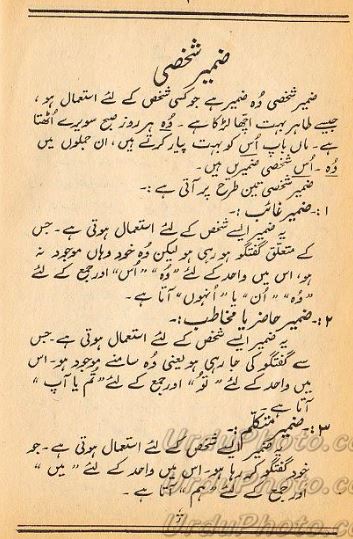 ضمیر شخصی
ضمیر شخصی وُہ ضمیر ہے جو کسی شخص کے لئے استعمال ہو،
جیسے طاہر بہت اچھا لڑکا ہے۔ وُہ ہر روز صبح سویرے اُٹھتا
ہے۔ ماں باپ اُس کو بہت پیار کرتے ہیں، ان جملوں میں
وُہ ۔ اُس شخصی ضمیریں ہیں۔
ضمیر شخصی تین طرح پر آتی ہے :۔
۱:۔ ضمیر غائب :۔
یہ ضمیر ایسے شخص کے لئے استعمال ہوتی ہے۔ جس
کے متعلق گفتگو ہو رہی ہو لیکن وُہ خود وہاں موجود نہ
ہو، اس میں واحد کے لئے "وُہ" "اُس" اور جمع کے لئے
"وُہ" "اُن" یا "اُنہوں" آتا ہے۔
۲:۔ ضمیر حاضر یا مخاطب :۔
یہ ضمیر ایسے شخص کے لئے استعمال ہوتی ہے۔ جس
سے گفتگو کی جا رہی ہو یعنی وُہ سامنے موجود ہو۔ اس
میں واحد کے لئے "تُو" اور جمع کے لئے "تم یا آپ"
آتا ہے۔
۳:۔ ضمیر متکلم :۔
یہ ضمیر ایسے شخص کے لئے استعمال ہوتی ہے۔ جو
خود گفتگو کر رہا ہو۔ اس میں واحد کے لئے "میں"
اور جمع کے لئے "ہم" آتا ہے۔
UrduPhoto.com
UrduPhoto.com